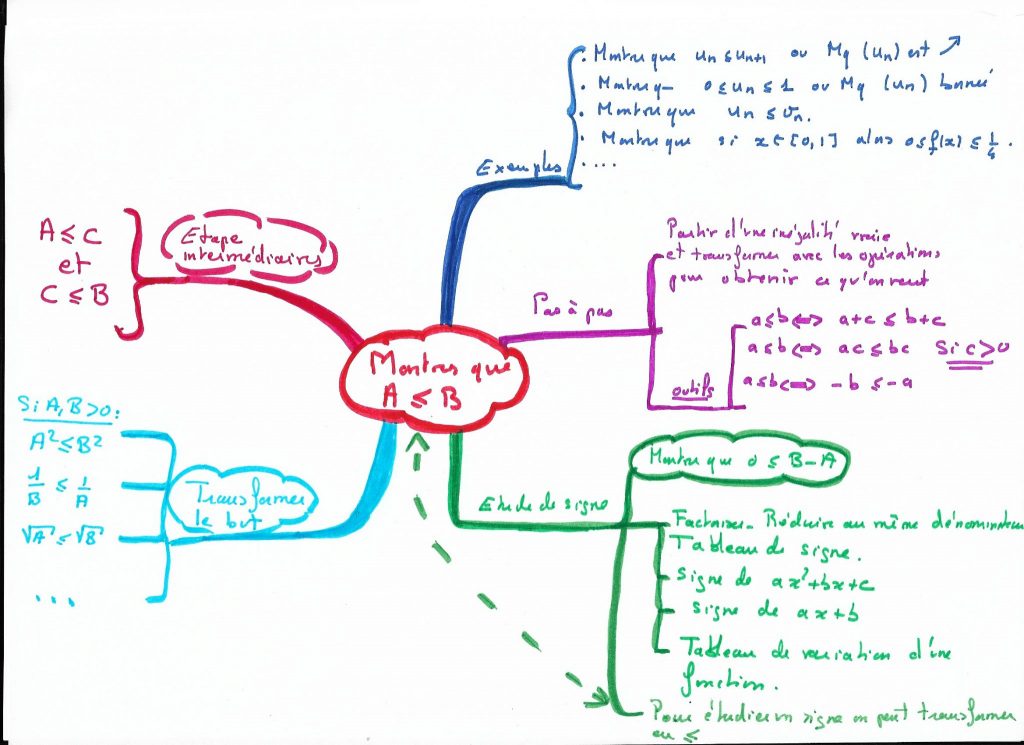 Montrer que
A ≤ B
Exemples
. Montrer que un ≤ un+1 ou Mq (un) est ↗
. Montrer q- 0 ≤ un ≤ 1 ou Mq (un) bornée
. Montrer que un ≤ vn.
. Montrer que si x ∈ [0,1] alors 0 ≤ f(x) ≤ 1/4.
....
Pas à pas
Partir d'une inégalité vraie
et transformer avec les opérations
pour obtenir ce qu'on veut
outils
a≤b ⟺ a+c ≤ b+c
a≤b ⟺ ac ≤ bc Si c>0
a≤b ⟺ -b ≤ -a
Etude de signe
Montrer que 0 ≤ B-A
Factoriser - Réduire au même dénominateur
Tableau de signe.
Signe de ax²+bx+c
Signe de ax+b
Tableau de variation d'une
fonction.
Pour étudier un signe on peut transformer
en ≤
Transformer
le but
Si A, B >0 :
A² ≤ B²
1/B ≤ 1/A
√A ≤ √B
...
Etape
intermédiaires
A ≤ C
et
C ≤ B